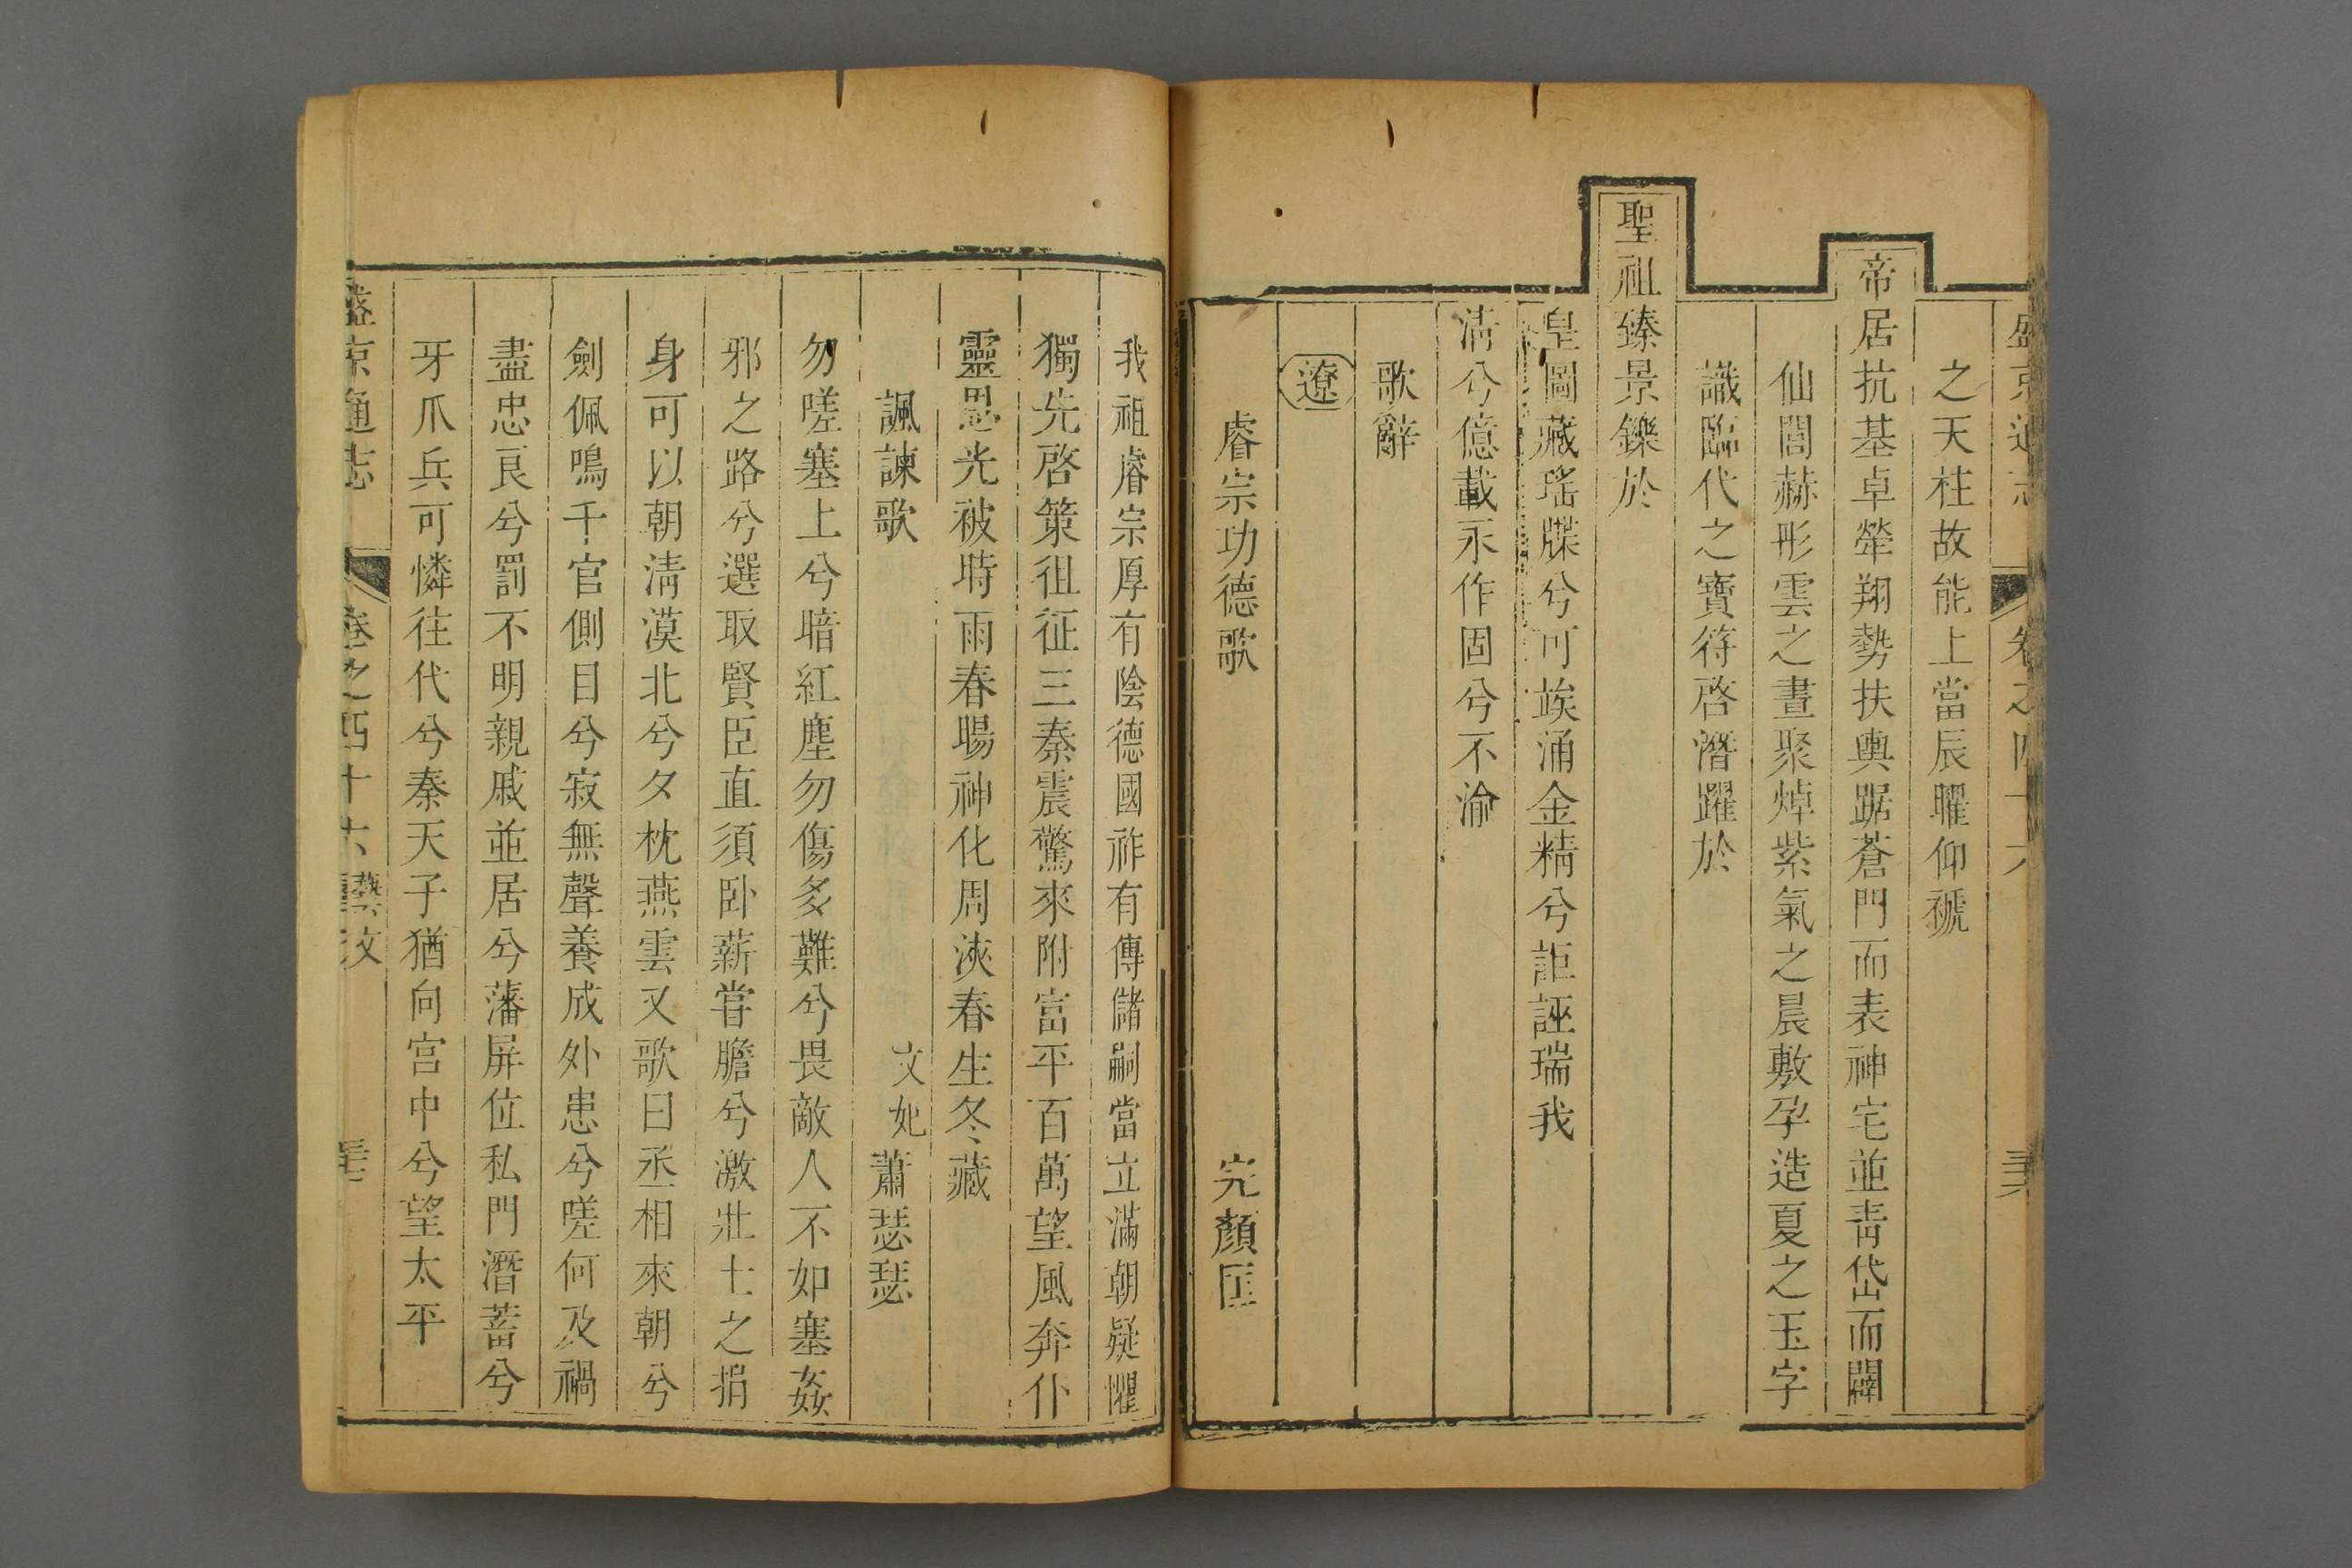 之天柱故能上當辰曜仰褫
帝居抗基卓犖翔勢扶輿踞蒼門而表神宅並靑岱而闢
仙閭赫彤雲之晝聚焯紫氣之晨敷孕造夏之玉字
識臨代之寶符啓潛躍於
聖祖臻景鑠於
皇圖藏瑤牒兮可竢涌金精兮詎誣瑞我
淸兮億載永作固兮不渝
歌辭
遼
睿宗功德歌 完顏匡
我祖睿宗厚有陰德國祚有傳儲嗣當立滿朝疑懼
獨先啓策徂征三秦震驚來附富平百萬望風奔仆
靈恩光被時雨春暘神化周浹春生冬藏
諷諫歌 文妃蕭瑟瑟
勿嗟塞上兮暗紅塵勿傷多難兮畏敵人不如塞姦
邪之路兮選取賢臣直須卧薪甞膽兮激壯士之捐
身可以朝淸漠北兮夕枕燕雲又歌曰丞相來朝兮
劍佩鳴千官側目兮寂無聲養成外患兮嗟何及禍
盡忠良兮罰不明親戚並居兮藩屏位私門潛蓄兮
牙爪兵可憐往代兮秦天子猶向宮中兮望太平
盛京通志 卷之四十六藝文